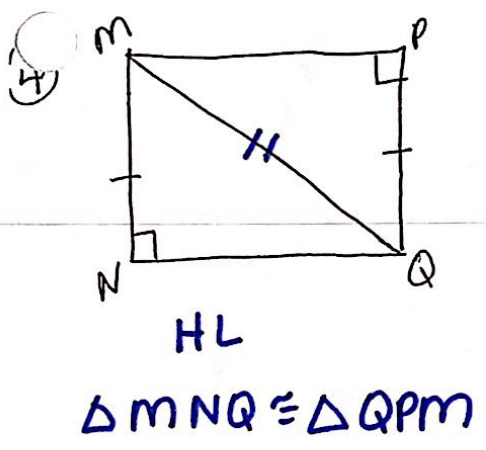 4
M P
N Q
HL
△MNQ≅△QPM